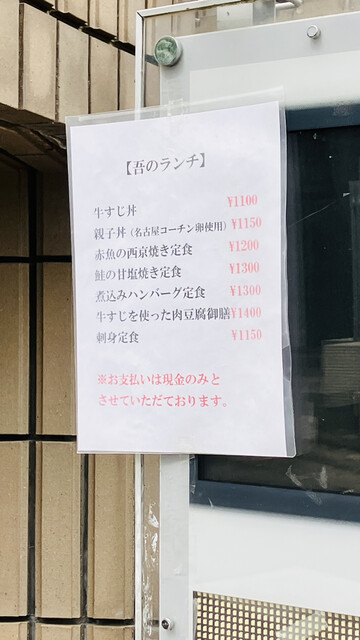 【吾のランチ】
牛すじ丼 ¥1100
親子丼（名古屋コーチン卵使用） ¥1150
赤魚の西京焼き定食 ¥1200
鮭の甘塩焼き定食 ¥1300
煮込みハンバーグ定食 ¥1300
牛すじを使った肉豆腐御膳 ¥1400
刺身定食 ¥1150
※お支払いは現金のみと
させていただております。